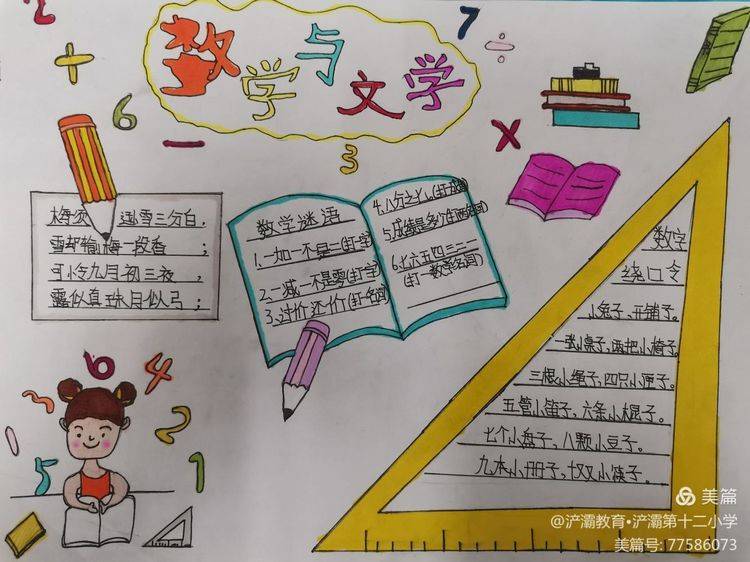 数学与文学
2
7
6
3
x
梅须逊雪三分白,
雪却输梅一段香;
可怜九月初三夜,
露似真珠月似弓;
数学谜语
1.一加一不是二(打一字)
2.二减一不是零(打一字)
3.讨价还价(打一名词)
4.八分之七(打成语)
5.成绩是多少(打两名词)
6.七六五四三二一
(打一数学名词)
数字
绕口令
小兔子、开铺子。
一张小桌子,两把小椅子。
三根小绳子,四只小匣子。
五管小笛子,六条小棍子。
七个小盘子,八颗小豆子。
九本小册子,十双小筷子。
6
4
3
2
1
5
1
美篇
@浐灞教育•浐灞第十二小学
美篇号: 77586073